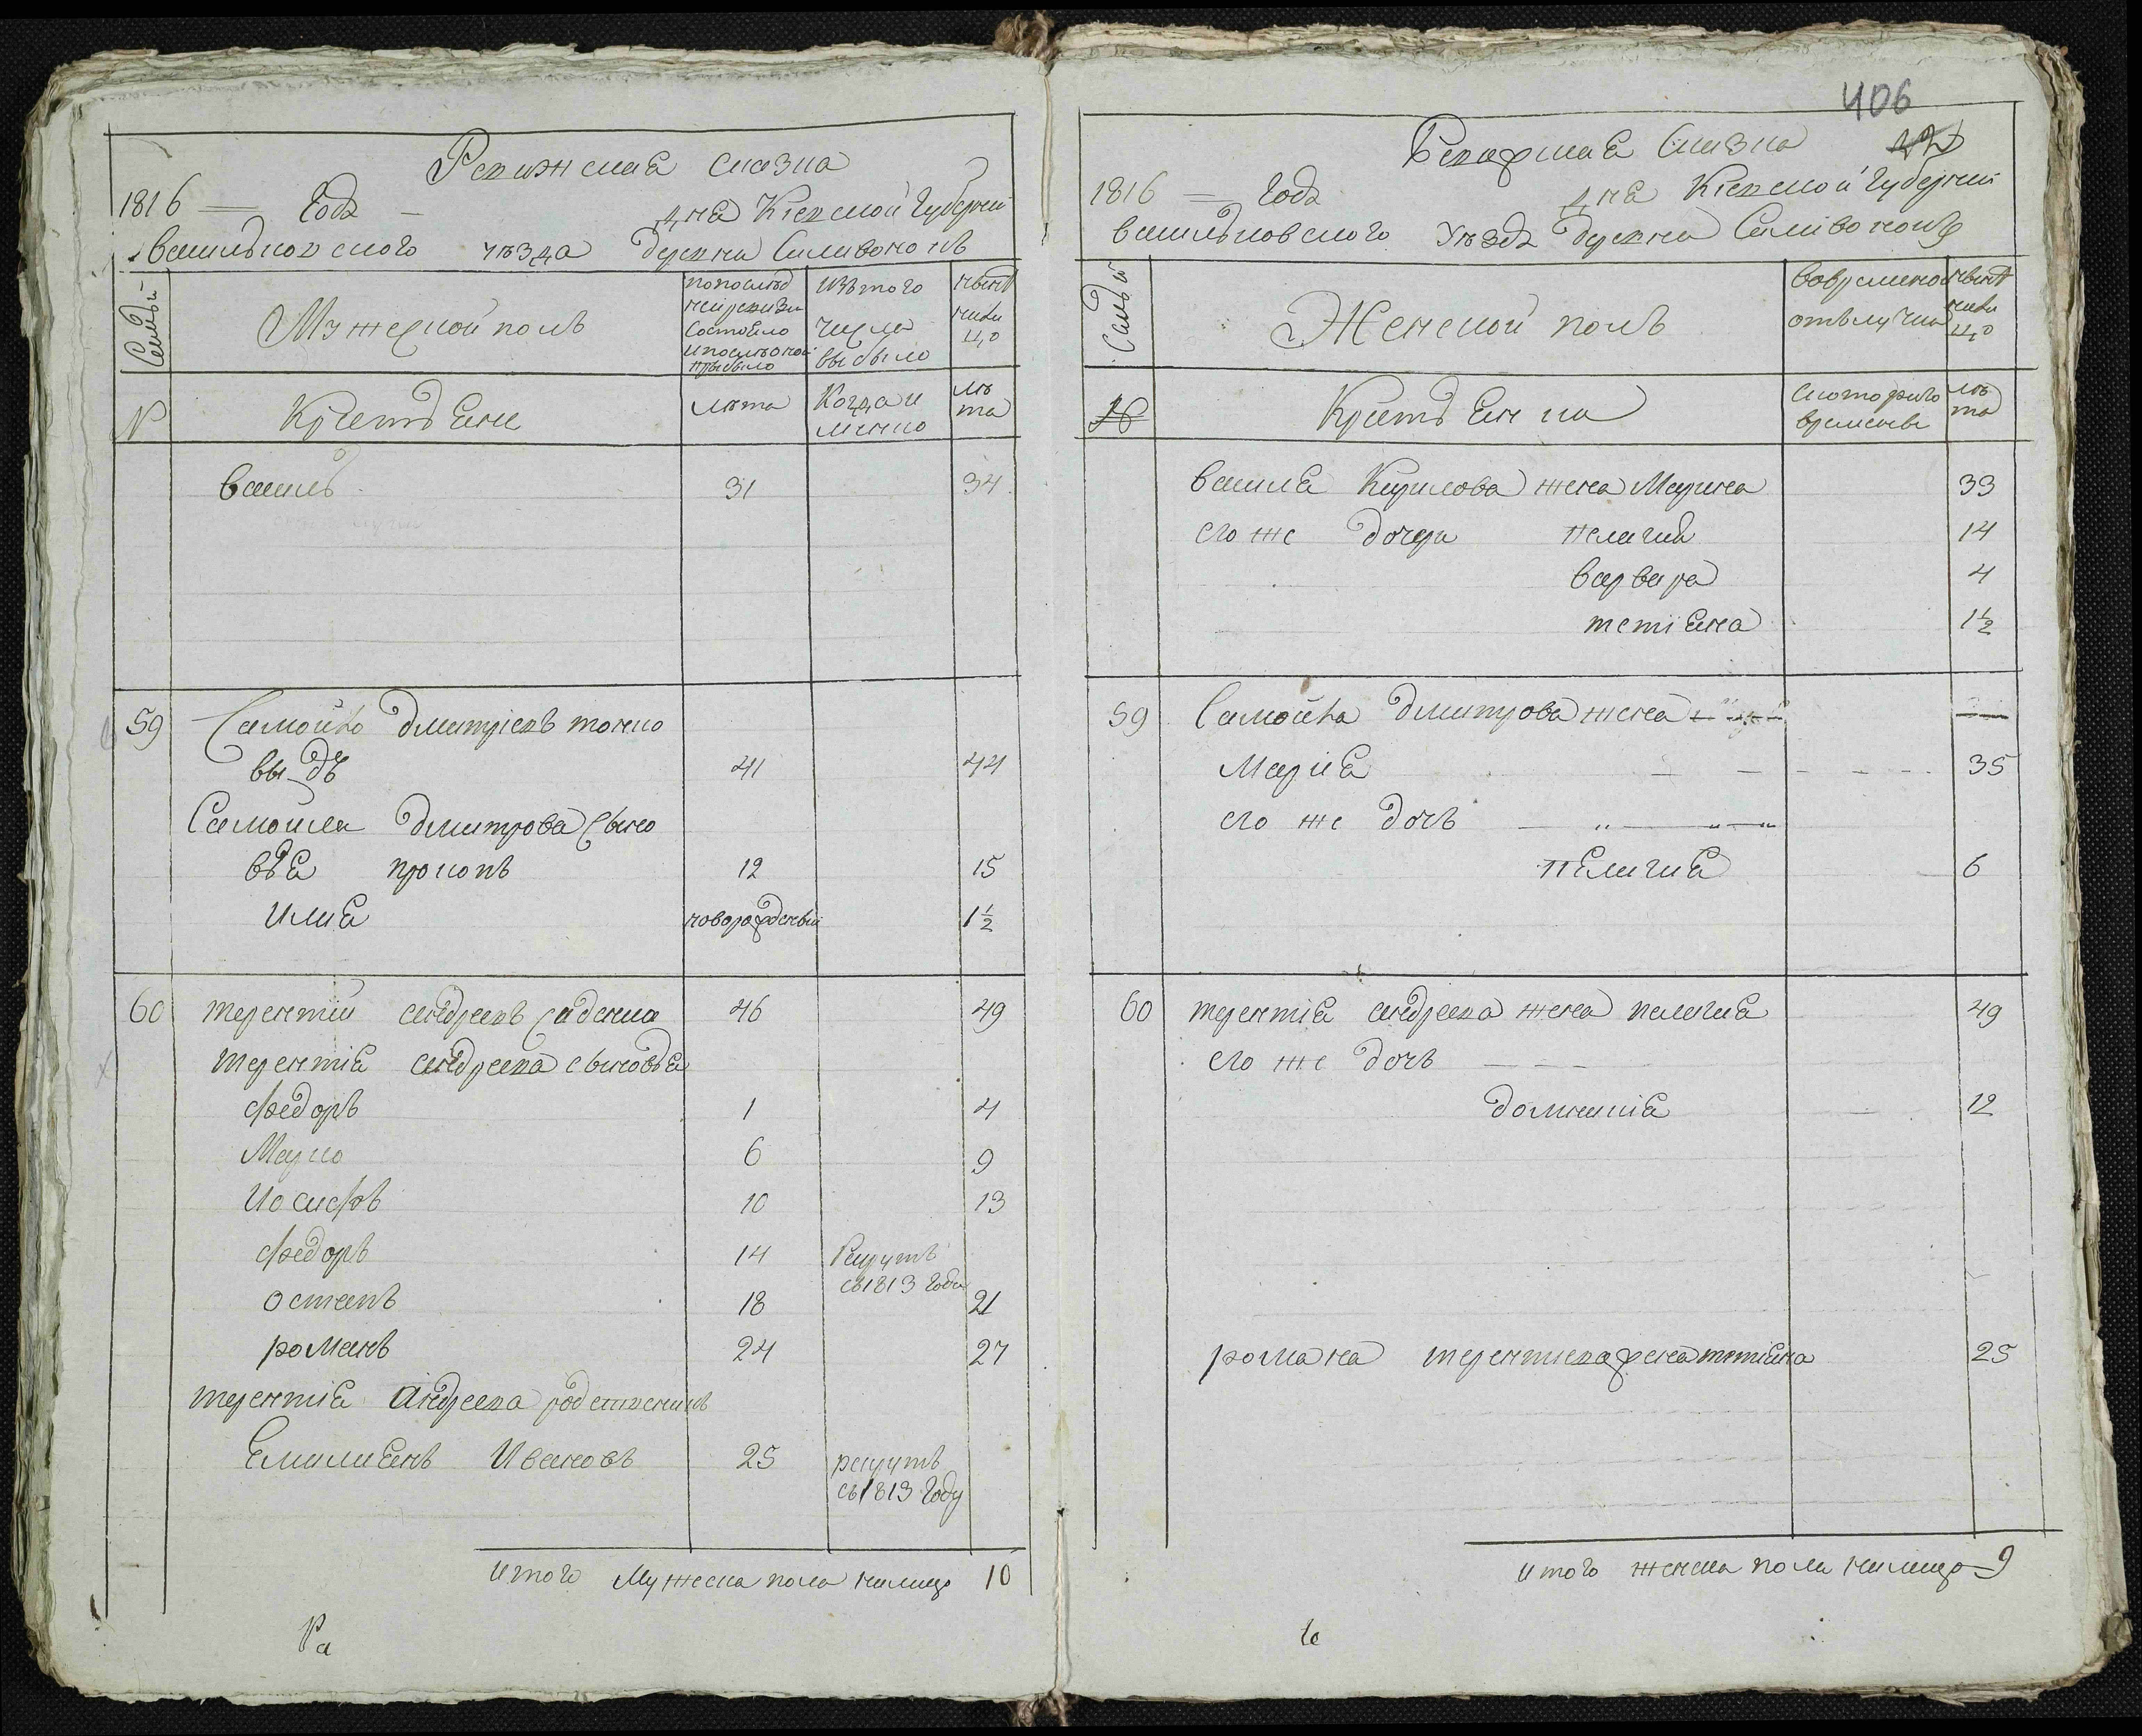 Ревижская сказка
1816 — Года — дня Кіевской Губерніи
васильковского уѣзда деревни Саливонокъ
Семьи
Мужеской полъ
попослѣд
ней ревизіи
состояло
и послѣ оной
прибыло
Изъ того
числа
выбыло
нынѣ
на ли
цо
№
Крестьяне
лѣта
Когда и
лѣ
та
василь
31
34
59
Самойло Дмитріевъ точно
вы дъ
41
44
Самойла Дмитрова сыно
вья прокопъ
12
15
Илия
новорожденый
1½
60
терентій андреевъ
46
49
терентія андреева сыновья
федоръ
1
4
Марко
6
9
Иосифъ
10
13
федоръ
14
Рекрутъ
съ 1813 года
остапъ
18
21
романъ
24
27
терентія Андреева родственникъ
Емилиянъ Ивановъ
25
рекрутъ
съ 1813 Году
итого Мужеска пола налицо 10
Ра
406
Ревижская Сказка
1816 — Года дня Кіевской Губерніи
васильковского уѣзда деревни Саливонокъ
Семьи
Женской полъ
вовременой
отълучки
нынѣ
нали
цо
№
Крестьянка
скоторого
времени
лѣ
та
василя Кирилова жена Марина
33
его же дочери пелагия
14
варвара
4
тетіяна
1½
59
Самойла Дмитрова жена
Мария
35
его же дочь
пелагия
6
60
терентія андреева жена пелагия
49
его же дочь
домникія
12
романа терентиева жена тетіяна
25
итого женска пола налицо 9